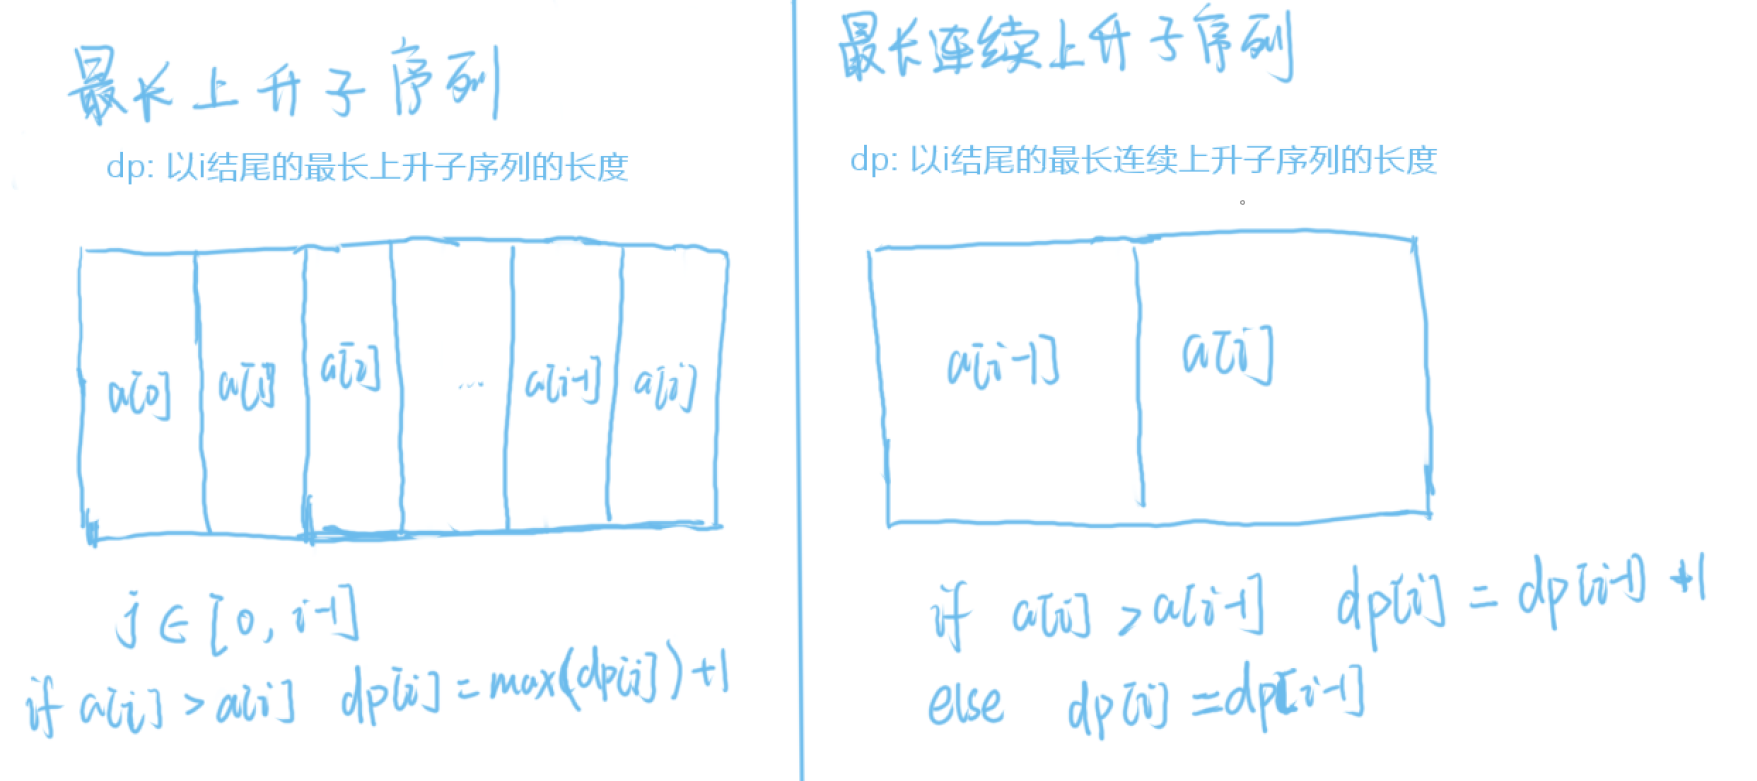 最长上升子序列
dp: 以i结尾的最长上升子序列的长度
a[0] a[1] a[2] ... a[i-1] a[i]
j ∈ [0, i-1]
if a[i] > a[j] dp[i] = max(dp[j]) +1
最长连续上升子序列
dp: 以i结尾的最长连续上升子序列的长度
。
a[i-1] a[i]
if a[i] > a[i-1] dp[i] = dp[i-1] +1
else dp[i] = dp[i-1]